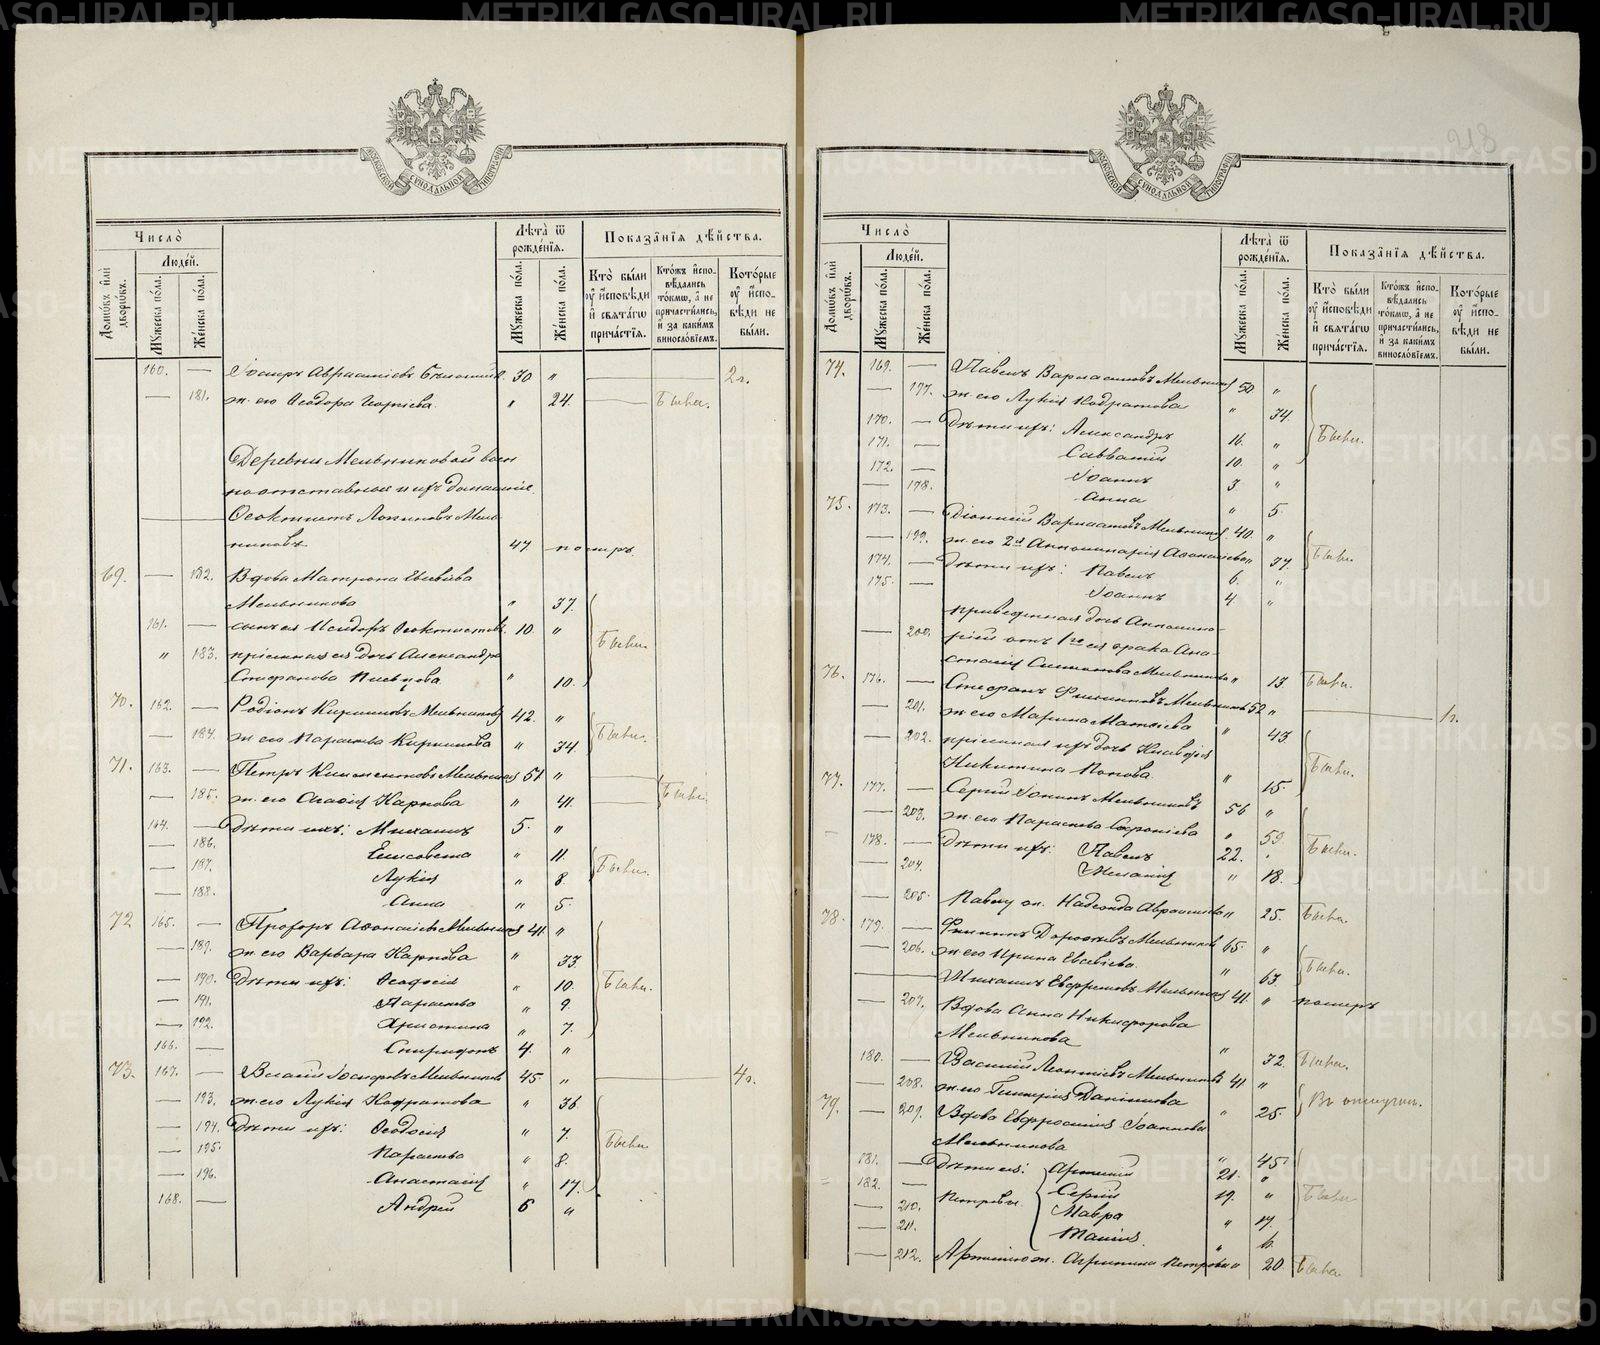 218
МОСКОВСКОЙ СѴНОДАЛЬНОЙ ТИПОГРАФІИ
Число̀
Домѡ́въ и҆лѝ дворѡ́въ.
Люде́й.
Мꙋ́жеска по́ла.
Же́нска по́ла.
Лѣ́та ѿ рожде́нїѧ.
Мꙋ́жеска по́ла.
Же́нска по́ла.
Показа̑нїѧ дѣ́йства.
Кто̀ бы́ли
ᲂу҆ и҆́сповѣди
и҆ свѧта́гѡ
прича́стїѧ.
Кто́жъ и҆спо-
вѣ́дались
то́кмѡ, а҆ не
причасти́лись,
и҆ за каки́мъ
винословїемъ.
Кото́рые
ᲂу҆ и҆спо-
вѣди не
бы́ли.
160. — 30 " — 2 г.
— 181. ж. его Ѳеодора " 24. — Была.
Деревни Мельниковой
Ѳеоктистъ Мель-
никовъ 47 померъ
69. — 182. Вдова Матрона Евсевіева
Мельникова " 37.
161. — сынъ ея Исидоръ Ѳеоктистовъ 10. " Были.
" 183. дочь Александра
Стефанова " 10.
70. 162. — Родіонъ Кириловъ Мельниковъ 42. "
— 184. ж. его Параскева Кирилова " 34. Были.
71. 163. — Петръ Климентовъ Мельниковъ 51. "
— 185. ж. его Карпова " 41. Были.
164. — Дѣти ихъ: Михаилъ 5. "
— 186. Елисавета " 11.
— 187. Лукія " 8. Были.
— 188. Анна " 5.
72 165. — Прохоръ Аѳонасіевъ Мельниковъ 41. "
— 189. ж. его Варвара Карпова " 33.
— 190. Дѣти ихъ: Ѳеодосія " 10. Были.
— 191. Параскева " 9.
— 192. Христина " 7.
166. — Спиридонъ 4. "
73. 167. — Власій Іосифовъ Мельниковъ 45 " — 4 г.
— 193. ж. его Лукія Кодратова " 36
— 194. Дѣти ихъ: Ѳеодосія " 7. Были.
— 195. Параскева " 8.
— 196. Анастасія " 17.
168. — Андрей 6 "
Число̀
Домѡ́въ и҆лѝ дворѡ́въ.
Люде́й.
Мꙋ́жеска по́ла.
Же́нска по́ла.
Лѣ́та ѿ рожде́нїѧ.
Мꙋ́жеска по́ла.
Же́нска по́ла.
Показа̑нїѧ дѣ́йства.
Кто̀ бы́ли
ᲂу҆ и҆́сповѣди
и҆ свѧта́гѡ
прича́стїѧ.
Кто́жъ и҆спо-
вѣ́дались
то́кмѡ, а҆ не
причасти́лись,
и҆ за каки́мъ
винословїемъ.
Кото́рые
ᲂу҆ и҆спо-
вѣди не
бы́ли.
74. 169. — Павелъ Варлаамовъ Мельниковъ 50. "
— 197. ж. его Лукія Кодратова " 34.
170. — Дѣти ихъ: Александръ 16. " Были.
171. — Савватій 10. "
172. — Іоаннъ 3. "
— 198. Анна " 5.
75. 173. — Діонисій Варлаамовъ Мельниковъ 40. "
— 199. ж. его 2я Аполлинарія Аѳанасіева " 37. Были.
174. — Дѣти ихъ: Павелъ 6. "
175. — Іоаннъ 4. "
— 200. приведенная дочь Аполлина-
ріей отъ 1го ея брака Ана-
стасія Мельникова " 13. Была.
76. 176. — Стефанъ Филипповъ Мельниковъ 52 " — 1 г.
— 201. ж. его Марина Матѳіева " 43.
— 202. ихъ дочь
Никитина Попова " 15. Были.
77. 177. — Сергій Мельниковъ 56 "
— 203. ж. его Параскева Софоніева " 59
178. — Дѣти ихъ: Павелъ 22. " Были.
— 204. Меланія " 18.
— 205. Павлу ж. Надежда " 25. Была.
78. 179. — Филиппъ Дороѳеевъ Мельниковъ 65. "
— 206. ж. его Ирина Евсевіева " 63. Были.
— Михаилъ Ефремовъ Мельниковъ 41. " померъ
— 207. Вдова Анна Никифорова
Мельникова " 32. Была.
180. — Василій Леонтіевъ Мельниковъ 41 "
— 208. ж. его Гликерія Данилова " 25. Въ отлучкѣ.
79. — 209. Вдова Евфросинія Іоаннова
Мельникова " 45.
181. — Дѣти ея: Артемій 21. "
182. — Петровы Сергій 19. " Были
— 210. Мавра " 17.
— 211. Таисія " 6.
— 212. Артемію ж. Агрипина Петрова " 20. Была.
METRIKI.GASO-URAL.RU